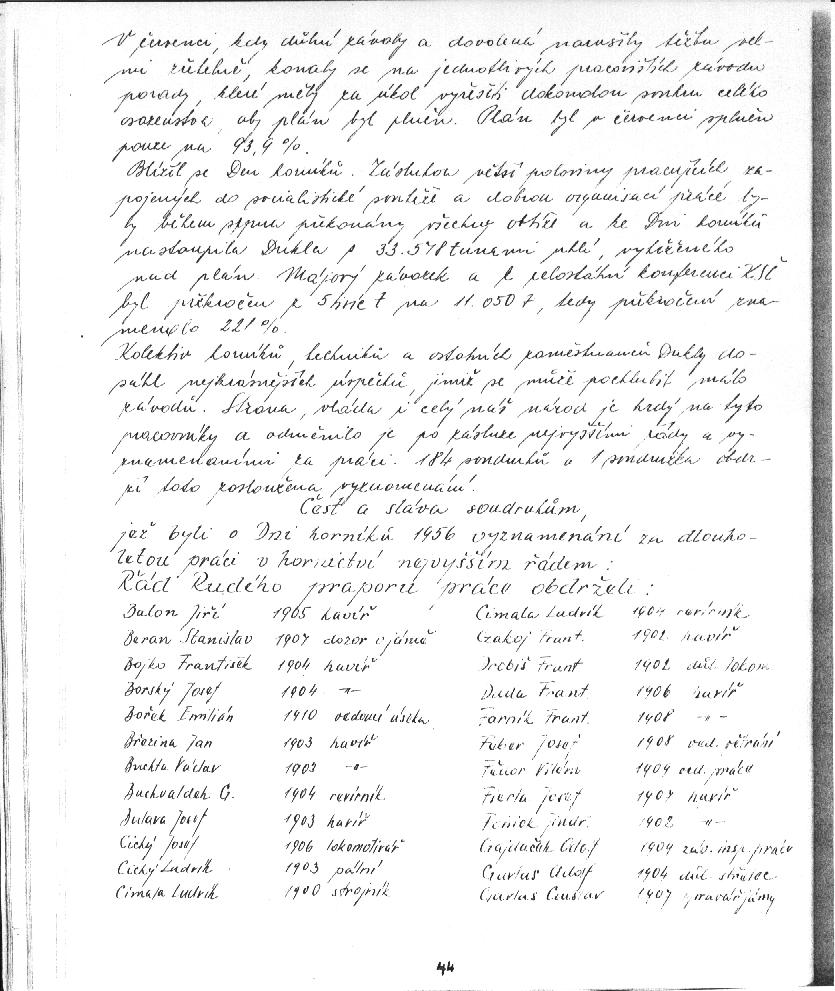 V červenci, kdy důlní závady a dovolená narušily těžbu vel-
mi zřetelně, konaly se na jednotlivých pracovištích závodu
porady, které měly za úkol vyřešiti dokonalou souhru celého
osazenstva, aby plán byl plněn. Plán byl v červenci splněn
pouze na 93,9 %.
Blížil se Den horníků. Zásluhou větší poloviny pracujících za-
pojených do socialistické soutěže a dobrou organisací práce by-
ly během srpna překonány všechny obtíže a ke Dni horníků
nastoupila Dukla s 33.578 tunami uhlí, vytěženého
nad plán. Májový závazek a k celostátní konferenci KSČ
byl překročen z 5 tisíc t na 11.050 t, tedy překročení zna-
menalo 221 %.
Kolektiv horníků, techniků a ostatních zaměstnanců Dukly do-
sáhl nejkrásnějších úspěchů, jimiž se může pochlubit málo
závodů. Strana, vláda i celý náš národ je hrdý na tyto
pracovníky a odměnilo je po zásluze nejvyššími řády a vy-
znamenáními za práci. 184 soudruhů a 1 soudružka obdr-
ží tato zasloužená vyznamenání.
Čest a sláva soudruhům,
jež byli o Dni horníků 1956 vyznamenáni za dlouho-
letou práci v hornictví nejvyšším řádem:
Řád Rudého praporu práce obdrželi:
Balon Jiří 1905 havíř Cimala Ludvík 1904 revírník
Beran Stanislav 1907 dozor v jámě Czakoj Frant. 1902 havíř
Bojko František 1904 havíř Drobiš Frant 1902 důl. lokom.
Borský Josef 1904 -"- Duda Frant 1906 havíř
Bořek Emilián 1910 vedoucí úseku Farník Frant. 1908 -"-
Březina Jan 1903 havíř Faber Josef 1908 ved. větrání
Buchta Václav 1903 -"- Fánor Vilém 1909 ved. práce
Buchvaldek G. 1904 revírník Fierla Josef 1907 havíř
Bulava Josef 1903 havíř Feniok Jindř. 1902 -"-
Cichý Josef 1906 lokomotivář Gajdačík Adolf 1909 záv. insp. práce
Cichý Ludvík 1903 palní Gurlas Adolf 1904 důl. střelec
Cimala Ludvík 1900 strojník Gurlas Gustav 1907 zpravář jámy
44